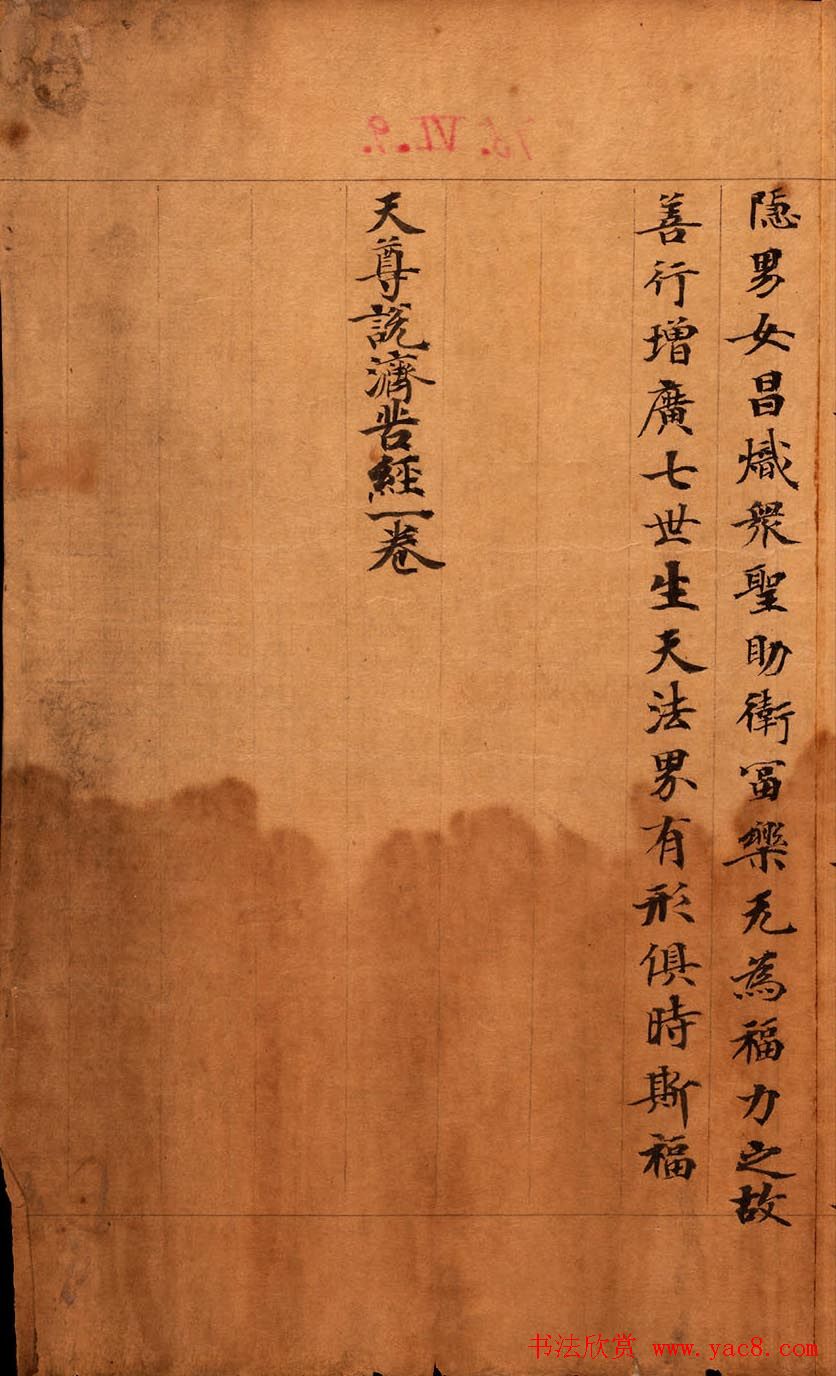 隱男女昌熾衆聖助衛冨樂无為福力之故
善行增廣七世生天法界有形俱時斯福
天尊說濟苦經一卷
75.VI.9.
书法欣赏 www.yac8.com